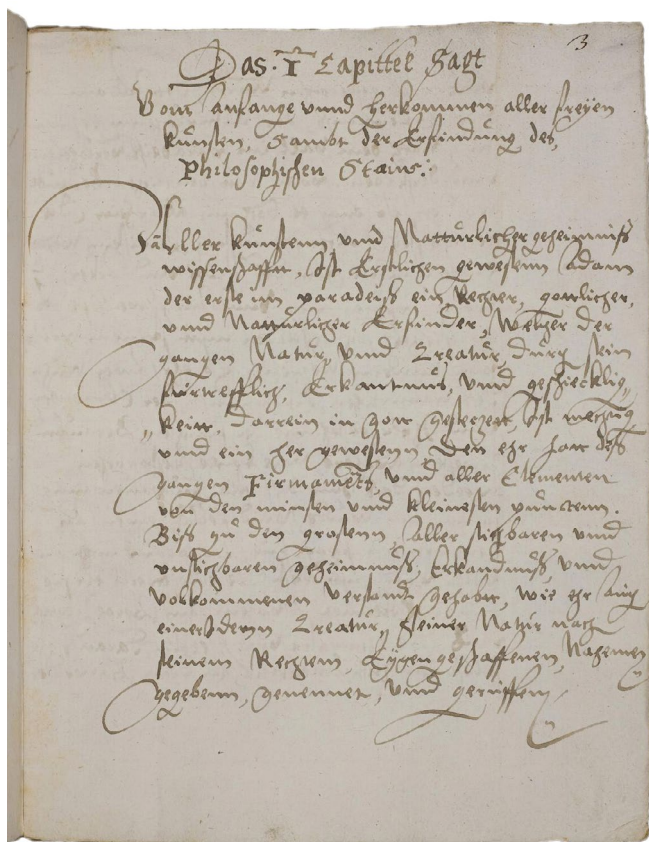 3
Das · 1 Capittel Sagt
Vom anfange vnnd herkommen aller freÿen
künsten, Sambt der Erfindung des,
Philosophischen Stains:
aller künstenn vnnd Nattürlicher geheimniß
wissenschafft, Ist Erstlichen gewesenn Adam
der erste im paradeiß ein Rechter, gottlicher,
vnnd Nattürlicher Erfinder, Welcher der
gantzen Natur, vnnd Creatur, durch sein
fürtrefflich, Erkantnus, vnnd geschicklig,,
,,keitt, darrein in gott gesetzett, Ist mechtig
vnnd ein her gewesenn Den ehr hatt deß
gantzen Firmaments, vnnd aller Elementen
von den minsten vnnd kleinesten püncten.
Biß zu den grostenn, aller sichbaren vnnd
vnsichbaren geheimnuß, Erkandnuß, vnnd
volkommenen verstandt gehabtt, wie ehr auch
einer Jdenn Creatur, seiner Natur nach
seinem Rechtem, Eÿgengeschaffenen, Nahemen
gegebenn, genennet, vnnd geruffenn